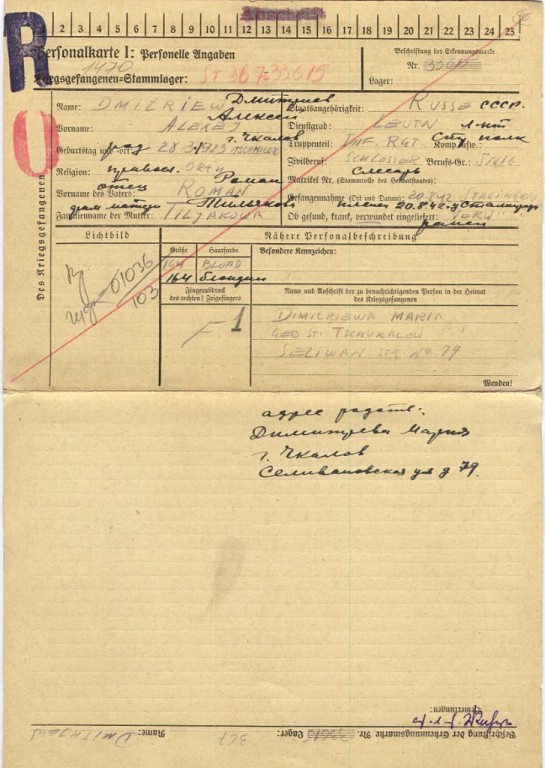 2 3 4 5 6 7 8 9 10 11 12 13 14 15 16 17 18 19 20 21 22 23 24 25
R
Personalkarte I: Personelle Angaben
Beschriftung der Erkennungsmarke
1470
Nr. 33615
Kriegsgefangenen-Stammlager: ST 367-33615
Lager:
Des Kriegsgefangenen
Name: DMITRIEW Дмитриев
Staatsangehörigkeit: RUSSE СССР.
Vorname: ALEXEJ Алексей
Dienstgrad: LEUTN. л-нт
Geburtstag und -ort: 28.3.1913 TSCHKALOW г. Чкалов
Truppenteil: INF. RGT Komp. usw.:
Religion: ORTH правосл.
Zivilberuf: SCHLOSSER Berufs-Gr.:
слесарь
Matrikel Nr. (Stammrolle des Heimatstaates):
Vorname des Vaters: ROMAN Роман
отец
Gefangennahme (Ort und Datum): 20.8.42 STALINGRAD
Familienname der Mutter: TILJAKOWA
Ob gesund, krank, verwundet eingeliefert: VERW.
ранен
Lichtbild
Nähere Personalbeschreibung
Größe Haarfarbe Besondere Kennzeichen:
164 BLOND
164 блондин
01036
103
Fingerabdruck
des rechten! Zeigefingers
Name und Anschrift der zu benachrichtigenden Person in der Heimat
des Kriegsgefangenen
F 1
DIMITRIEWA MARIA
GEO ST. TSCHKALOW
SELIWAN STR No 79
Wenden!
адрес родств:
Димитриева Мария
г. Чкалов
Селивановская ул д 79.
Bemerkungen:
Beschriftung der Erkennungsmarke Nr. 33615 Lager: 367 Name: DMITRJEW